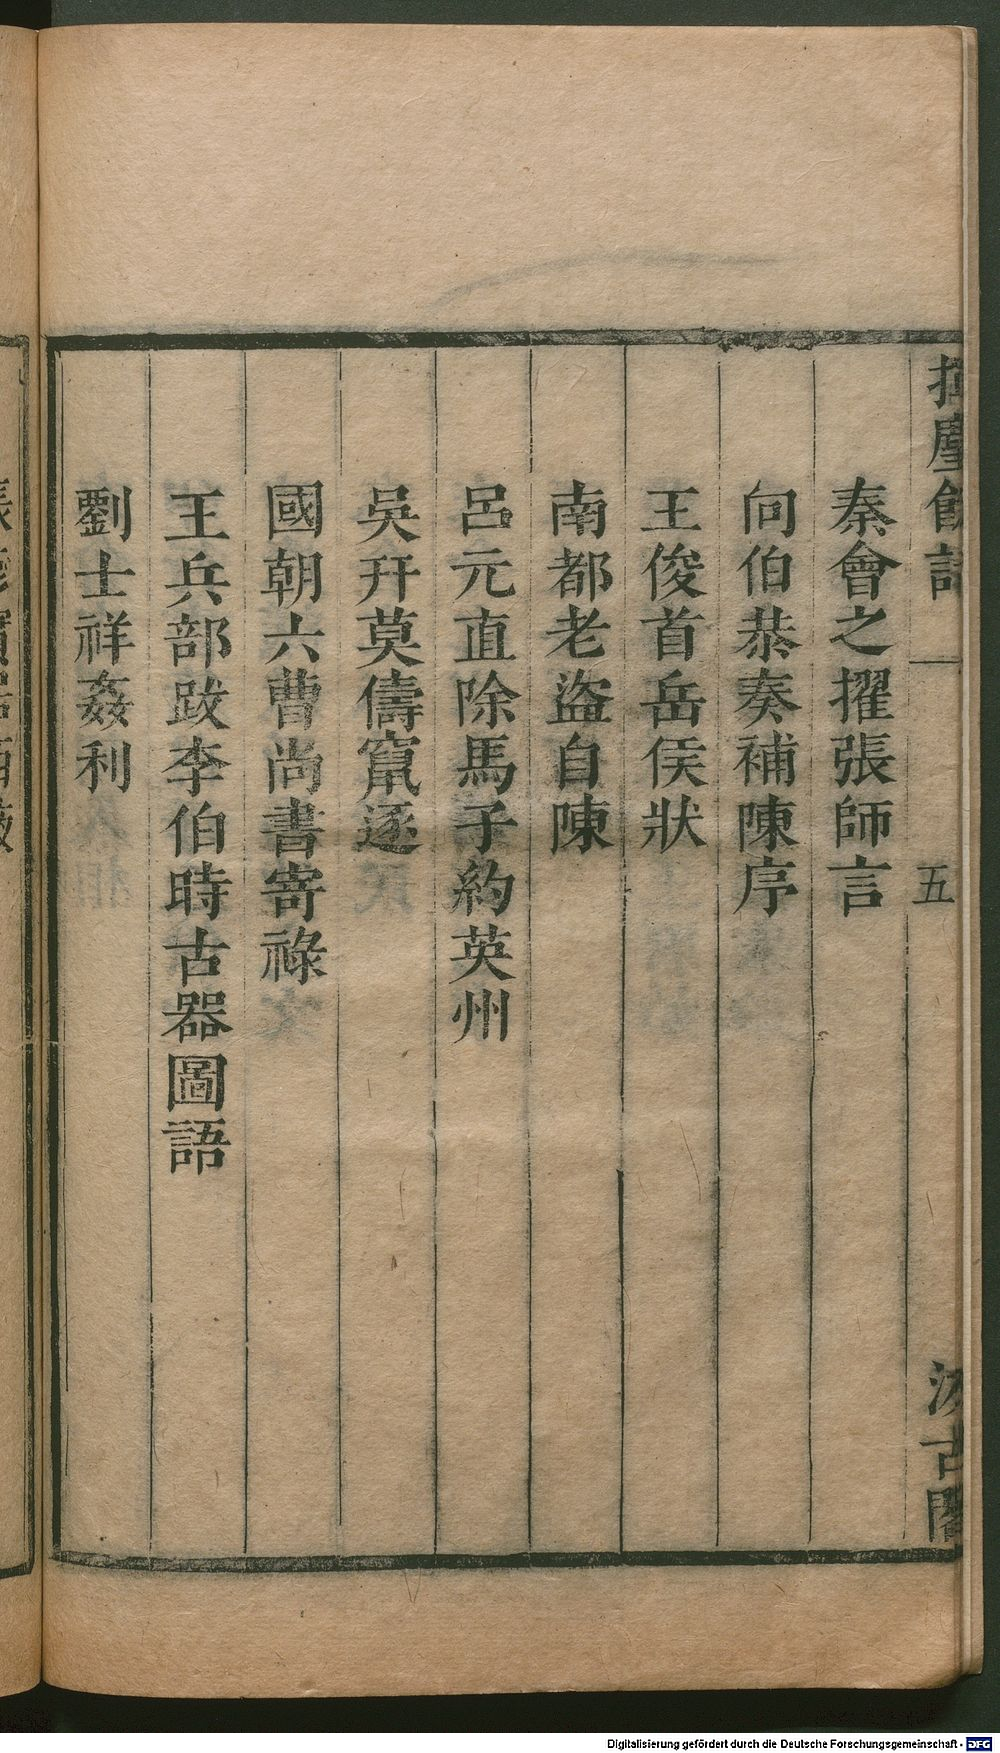 揮麈餘話 一 五 汲古閣
秦會之擢張師言
向伯恭奏補陳序
王俊首岳侯狀
南都老盜自陳
呂元直除馬子約英州
吳幵莫儔竄逐
國朝六曹尚書寄祿
王兵部跋李伯時古器圖語
劉士祥姦利
Digitalisierung gefördert durch die Deutsche Forschungsgemeinschaft - DFG